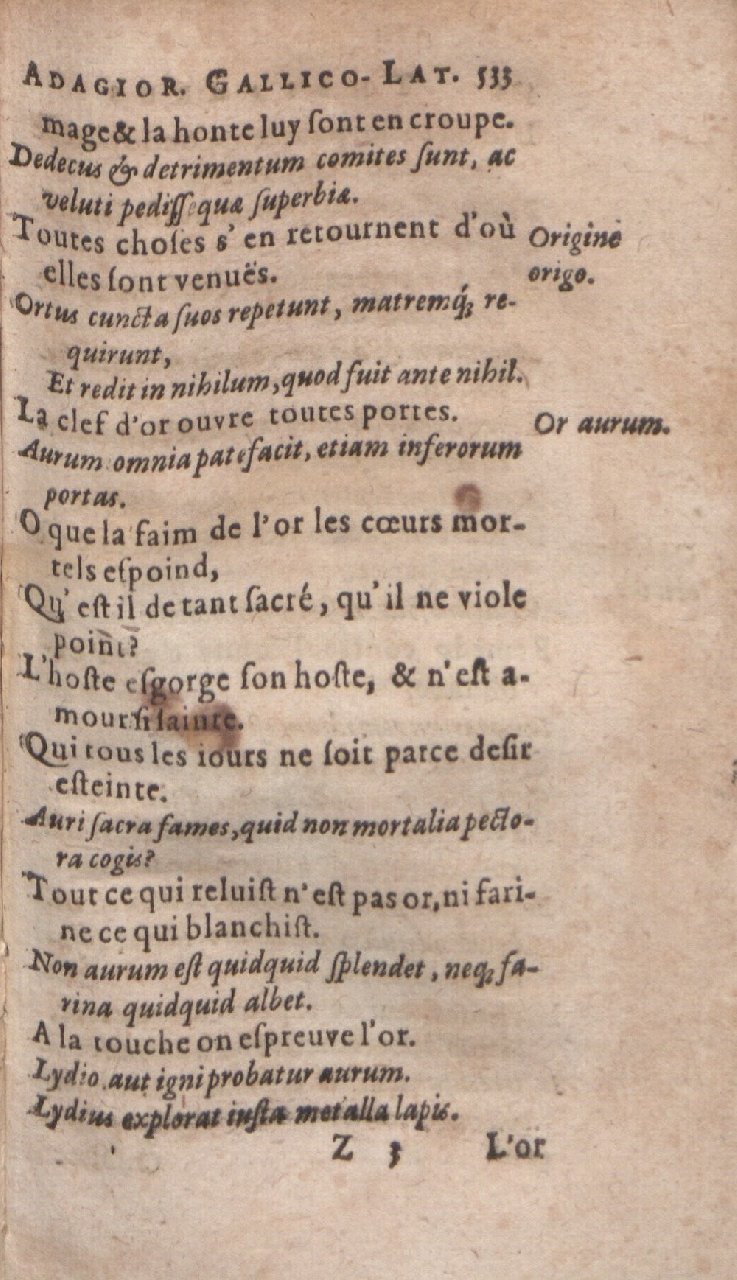 ADAGIOR. GALLICO-LAT. 533
mage & la honte luy ſont en croupe.
Dedecus & detrimentum comites ſunt, ac
veluti pediſſequæ ſuperbiæ.
Toutes choſes s'en retournent d'où
elles ſont venuës.
Origine
origo.
Ortus cuncta ſuos repetunt, matremq́; re-
quirunt,
Et redit in nihilum, quod fuit ante nihil.
La clef d'or ouvre toutes portes.
Or aurum.
Aurum omnia patefacit, etiam inferorum
portas.
O que la faim de l'or les cœurs mor-
tels eſpoind,
Qu'eſt il de tant ſacré, qu'il ne viole
point?
L'hoſte eſgorge ſon hoſte, & n'eſt a-
mour ſi ſainte.
Qui tous les iours ne ſoit parce deſir
eſteinte.
Auri ſacra fames, quid non mortalia pecto-
ra cogis?
Tout ce qui reluiſt n'eſt pas or, ni fari-
ne ce qui blanchiſt.
Non aurum eſt quidquid ſplendet, neq; fa-
rina quidquid albet.
A la touche on eſpreuve l'or.
Lydio aut igni probatur aurum.
Lydius explorat iuſta metalla lapis.
Z 3 L'or